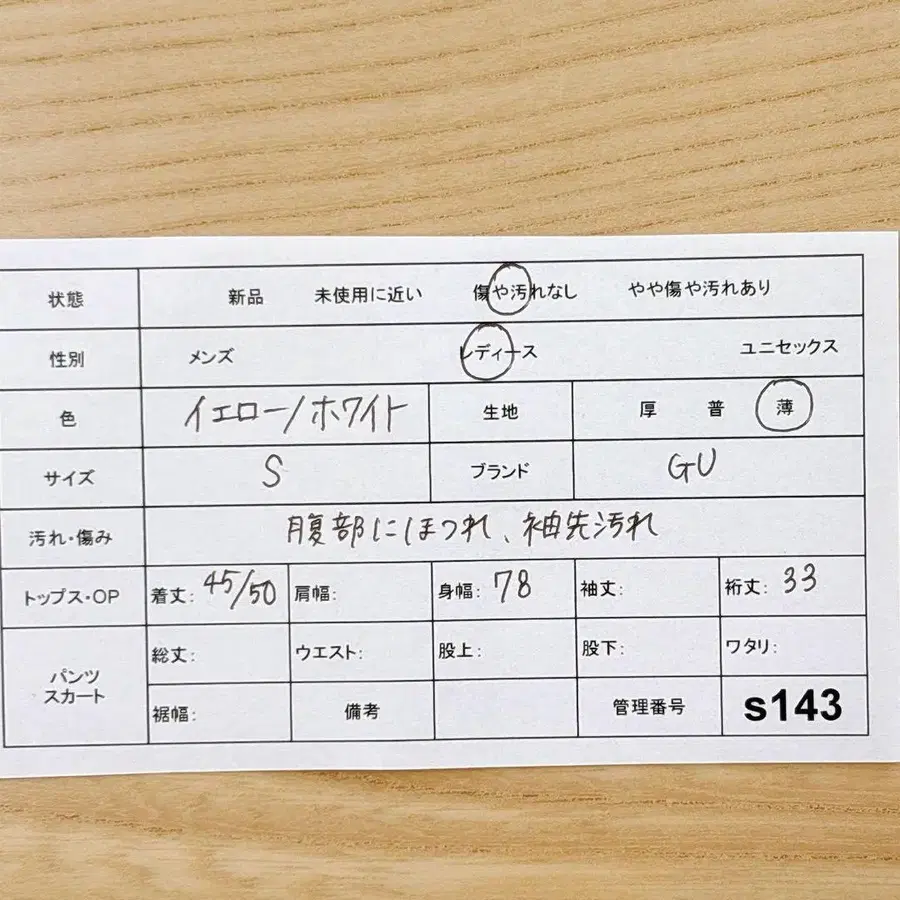 状態 新品 未使用に近い 傷や汚れなし やや傷や汚れあり
性別 メンズ レディース ユニセックス
色 イエロー/ホワイト 生地 厚 普 薄
サイズ S ブランド GU
汚れ・傷み 腹部にほつれ、袖先汚れ
トップス・OP 着丈: 45/50 肩幅: 身幅: 78 袖丈: 裄丈: 33
パンツ
スカート
総丈: ウエスト: 股上: 股下: ワタリ:
裾幅: 備考 管理番号 s143